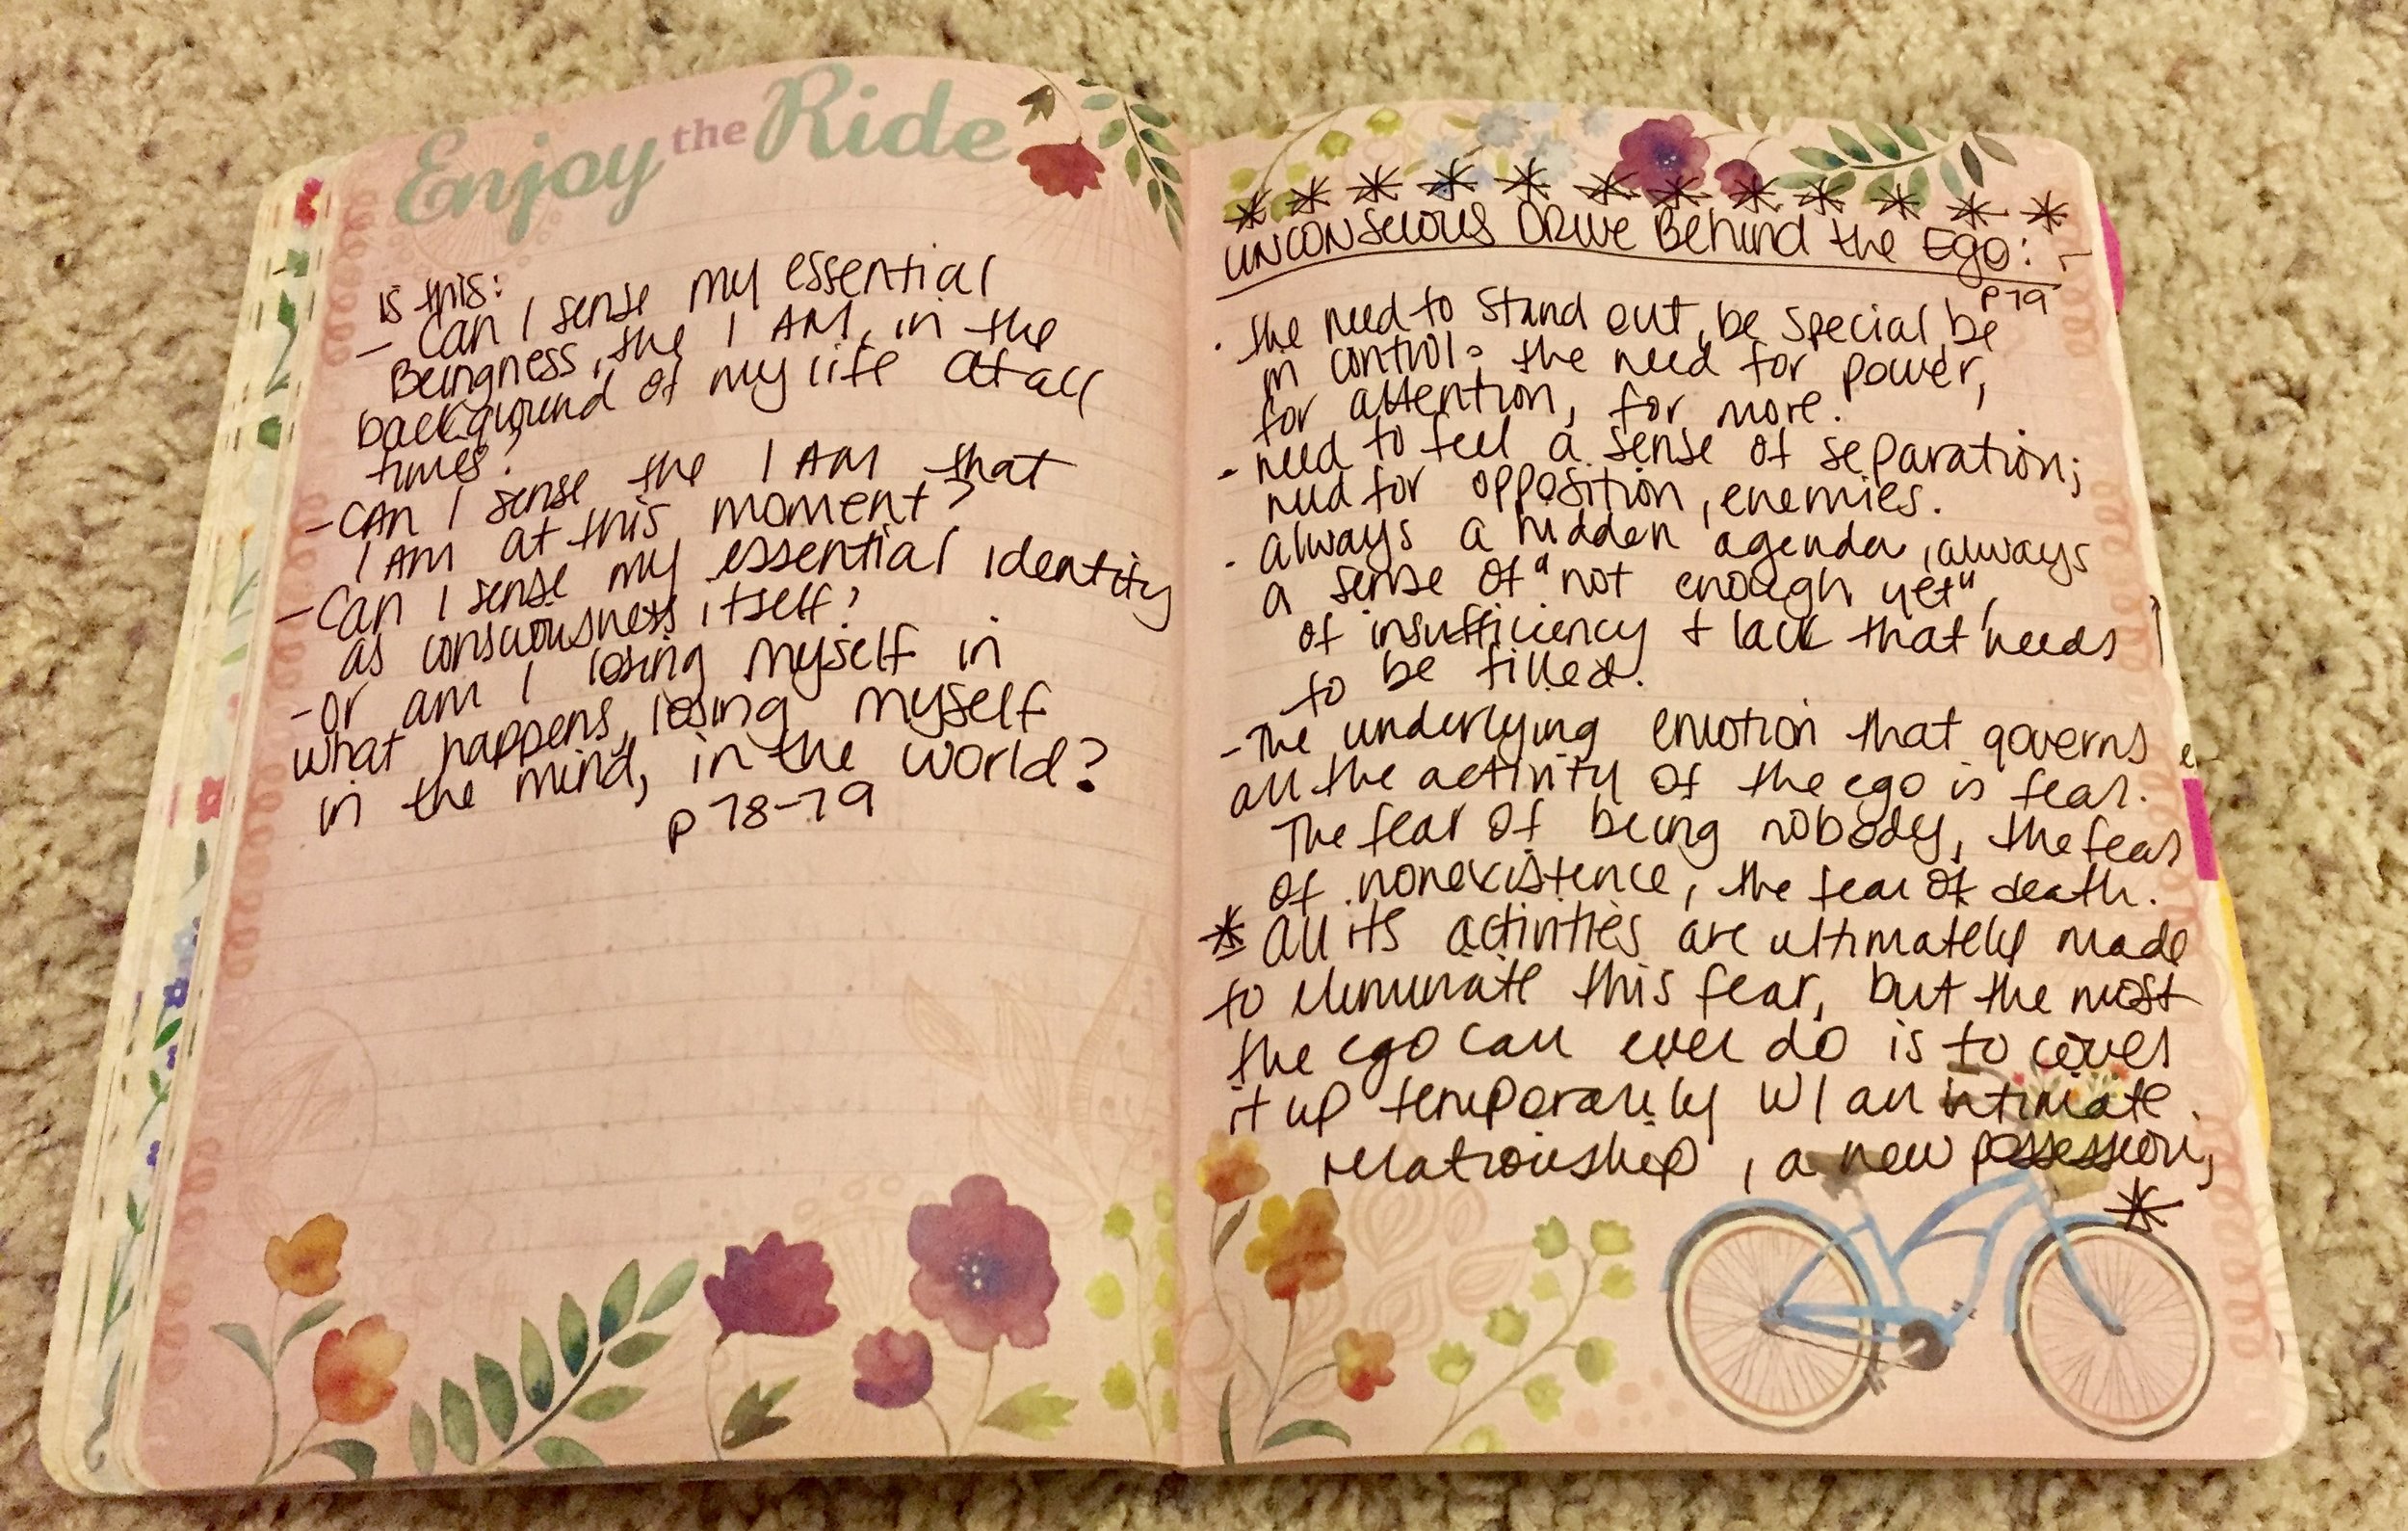 Enjoy the Ride
is this:
- Can I sense my essential
Beingness, the I AM, in the
background of my life at all
times?
- CAn I sense the I AM that
I AM at this moment?
- Can I sense my essential identity
as consciousness itself?
- Or am I losing myself in
what happens, losing myself
in the mind, in the world?
p 78-79
* * * * * * * * * * * *
UNCONSCIOUS DRIVE BEHIND the EGO:
p79
• the need to stand out, be special, be
in control = the need for power,
for attention, for more.
- need to feel a sense of separation;
need for opposition, enemies.
• always a hidden agenda, always
a sense of "not enough yet",
of insufficiency + lack that needs
to be filled.
- The underlying emotion that governs
all the activity of the ego is fear.
The fear of being nobody, the fear
of nonexistence, the fear of death.
* All its activities are ultimately made
to eliminate this fear, but the most
the ego can ever do is to cover
it up temporarily w/ an intimate
relationship, a new possession,
*